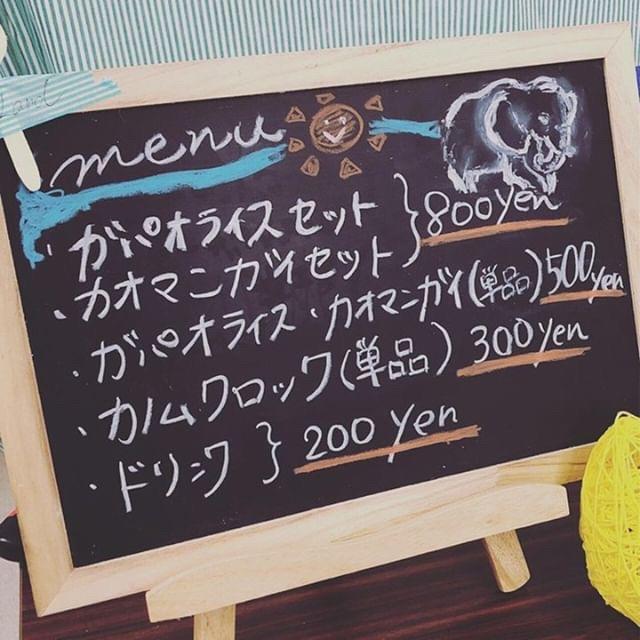 Land
menu
・ガパオライスセット
・カオマンガイセット } 800yen
・ガパオライス・カオマンガイ(単品) 500yen
・カノムクロック(単品) 300yen
・ドリンク } 200 yen